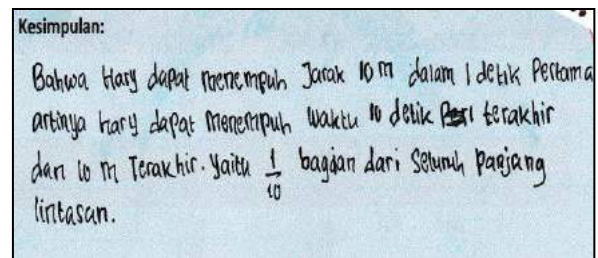 Kesimpulan:
Bahwa Hary dapat menempuh Jarak 10 m dalam 1 detik Pertama
artinya hary dapat menempuh waktu 10 detik terakhir
dan 10 m Terakhir. Yaitu 1/10 bagian dari Seluruh panjang
lintasan.